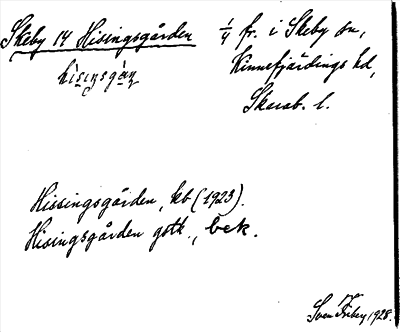 Skeby 14 Hisingsgården
¼ fr. i Skeby sn,
Kinnefjärdings hd,
Skarab. l.
Hissingsgården, kb (1923).
Hisingsgården gstk., bek.
1928.